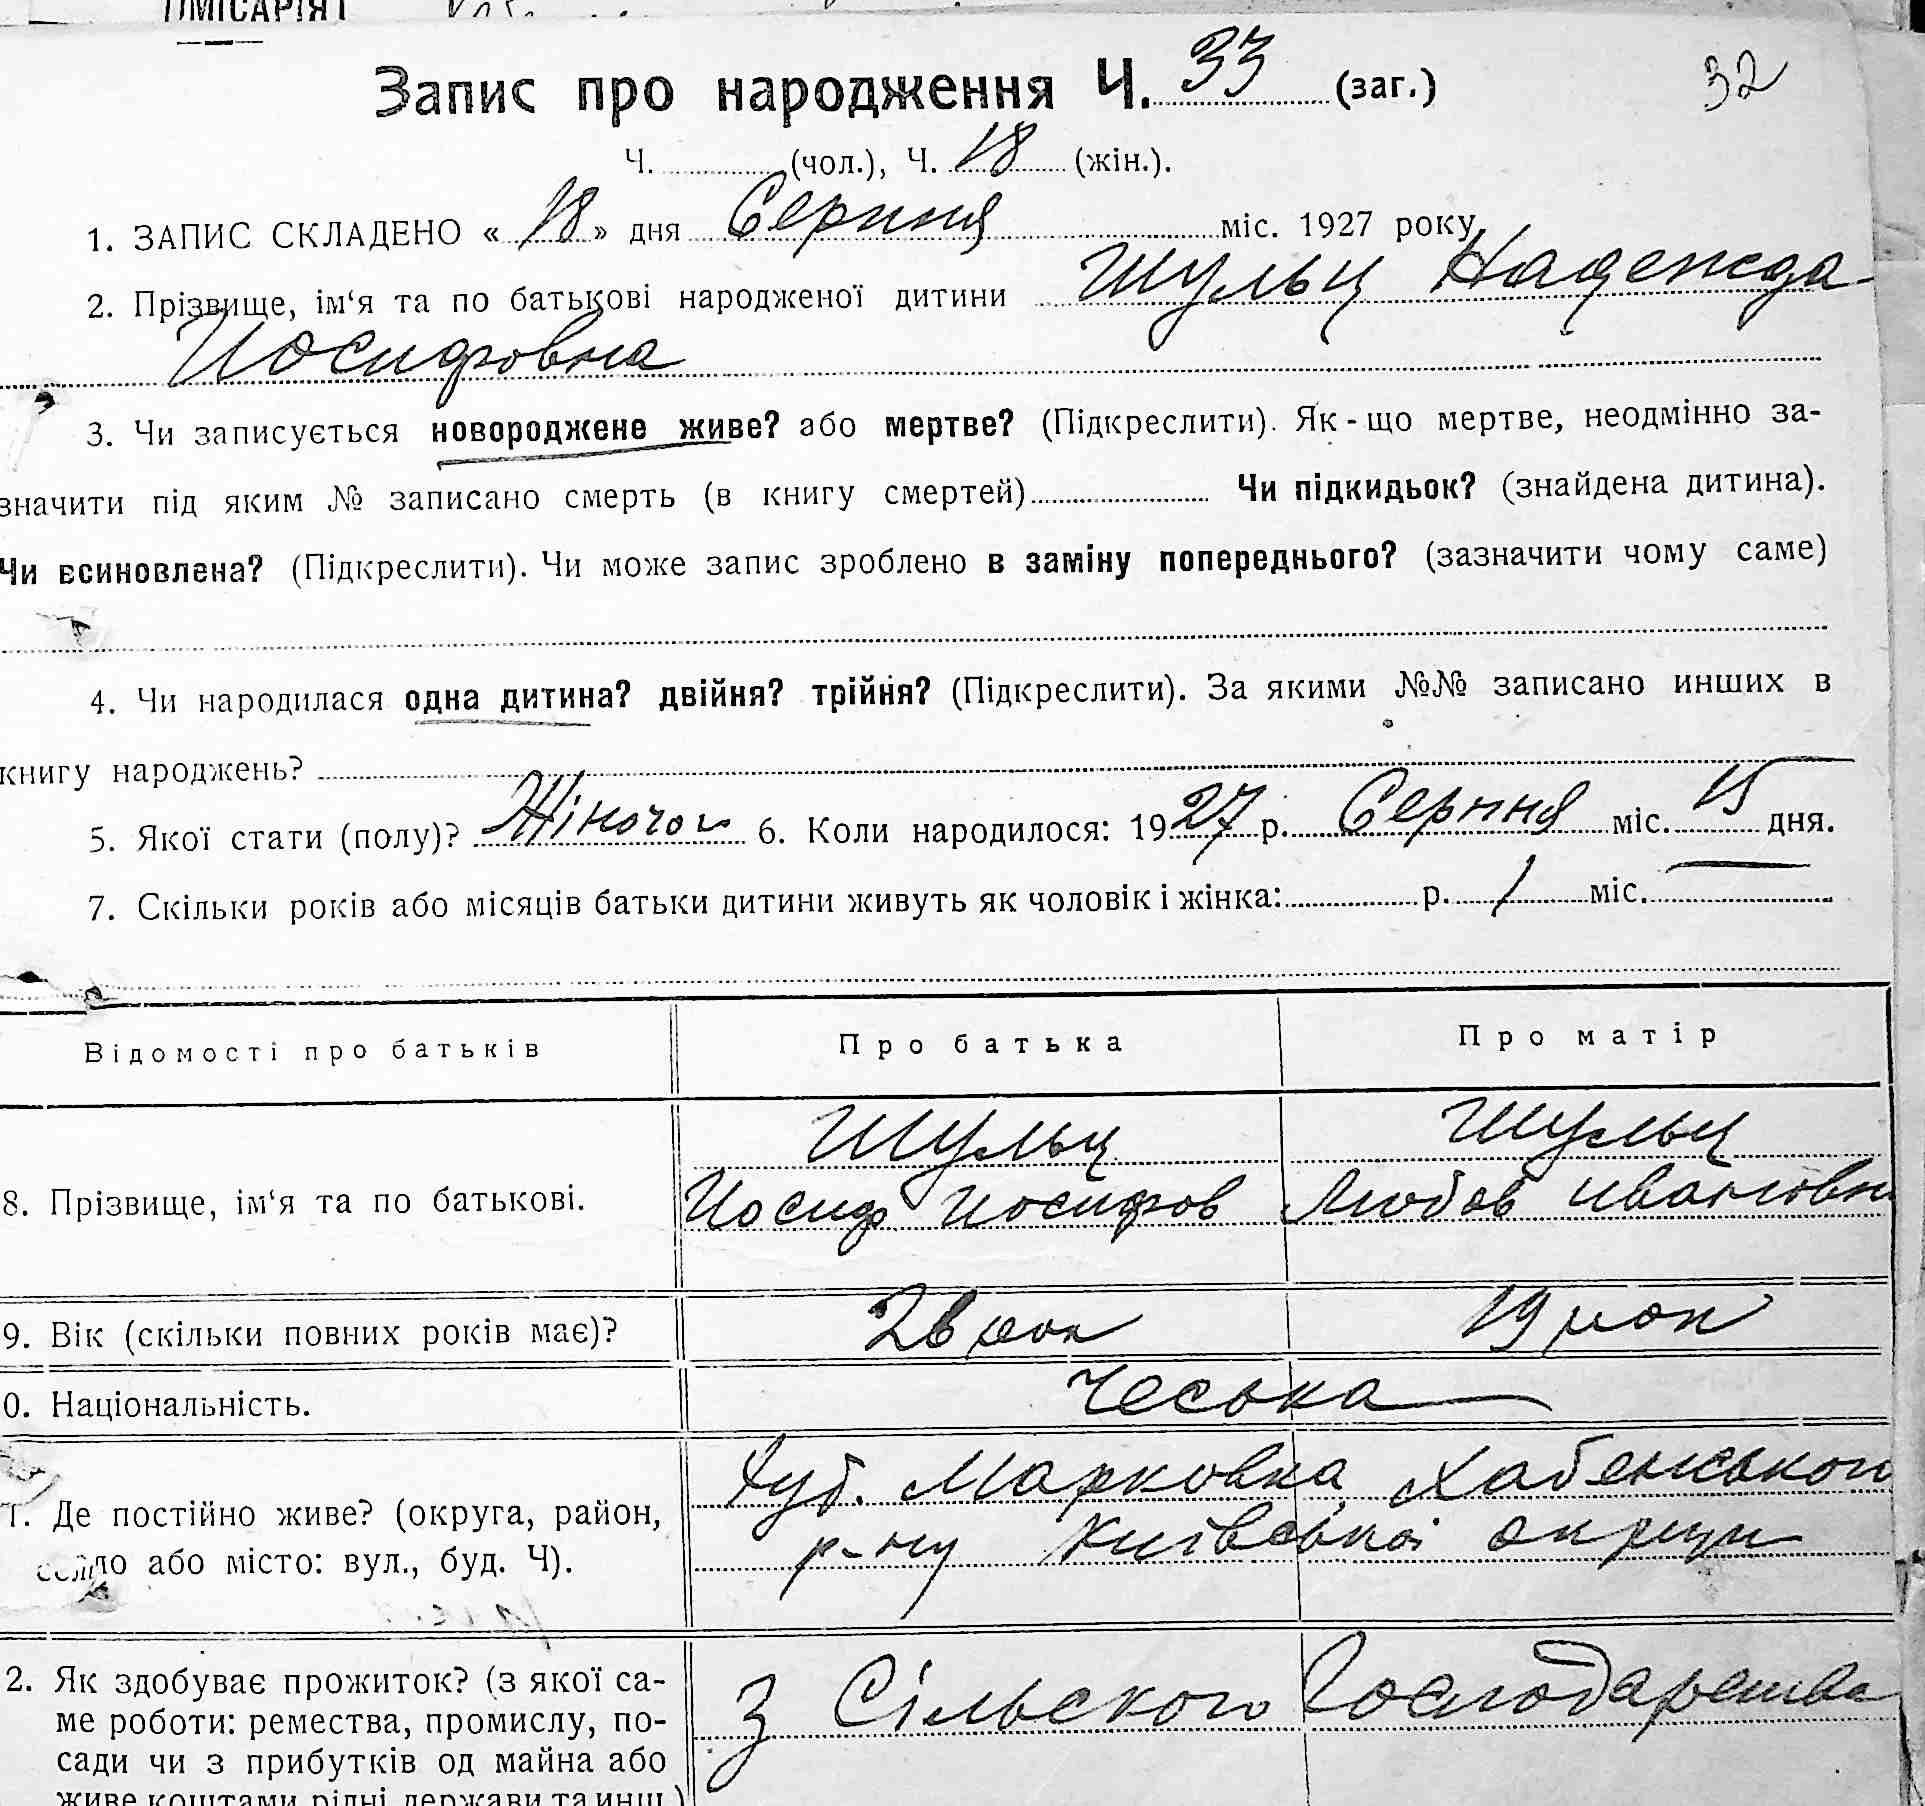 Запис про народження Ч. 33 (заг.) 32
Ч. (чол.), Ч. 18 (жін.).
1. ЗАПИС СКЛАДЕНО « 18 » дня Серпня міс. 1927 року
2. Прізвище, ім‘я та по батькові народженої дитини Шульц Надежда
Иосифовна
3. Чи записується новороджене живе? або мертве? (Підкреслити). Як-що мертве, неодмінно за-
значити під яким № записано смерть (в книгу смертей) Чи підкидьок? (знайдена дитина).
Чи всиновлена? (Підкреслити). Чи може запис зроблено в заміну попереднього? (зазначити чому саме)
4. Чи народилася одна дитина? двійня? трійня? (Підкреслити). За якими №№ записано инших в
книгу народжень?
5. Якої стати (полу)? Жіночої 6. Коли народилося: 1927 р. Серпня міс. 15 дня.
7. Скільки років або місяців батьки дитини живуть як чоловік і жінка: р. 1 міс.
Відомості про батьків Про батька Про матір
Шульц Шульц
8. Прізвище, ім‘я та по батькові. Иосиф Иосифов Любов Ивановн
9. Вік (скільки повних років має)? 26 рок 19 рок
0. Національність. Чеська
Хут. Марковка, Хабенського
1. Де постійно живе? (округа, район,
р-ну Київської округи
село або місто: вул., буд. Ч).
2. Як здобуває прожиток? (з якої са- З Сільского Господарства
ме роботи: ремества, промислу, по-
сади чи з прибутків од майна або
живе коштами рідні, держави та инш.)